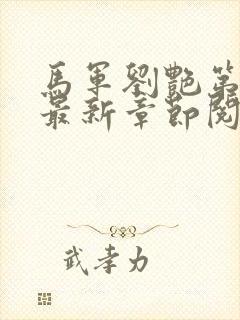 馬軍劉艷第
最新章節閱
武孝力